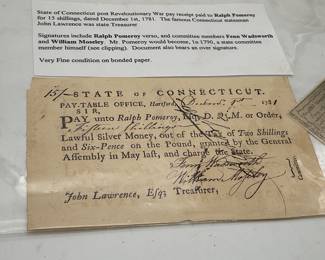 State of Connecticut post Revolutionary War pay receipt paid to Ralph Pomeroy
for 15 shillings, dated December 1st, 1781. The famous Connecticut statesman
John Lawrence was state Treasurer
Signatures include Ralph Pomeroy verso, and committee members Fenn Wadsworth
and William Moseley. Mr. Pomeroy would become, in 1790, a state committee
member himself (see clipping). Document also bears an over signature.
Very Fine condition on bonded paper.
15/- STATE OF CONNECTICUT.
PAY-TABLE OFFICE, Hartford, Decembr 1st 1781
SIR,
PAY unto Ralph Pomeroy, Esq; D. Q. M. or Order,
Fifteen Shillings
Lawful Silver Money, out of the Tax of Two Shillings
and Six-Pence on the Pound, granted by the General
Assembly in May last, and charge the State.
Fenn Wadsworth
William Moseley
John Lawrence, Esq; Treasurer,